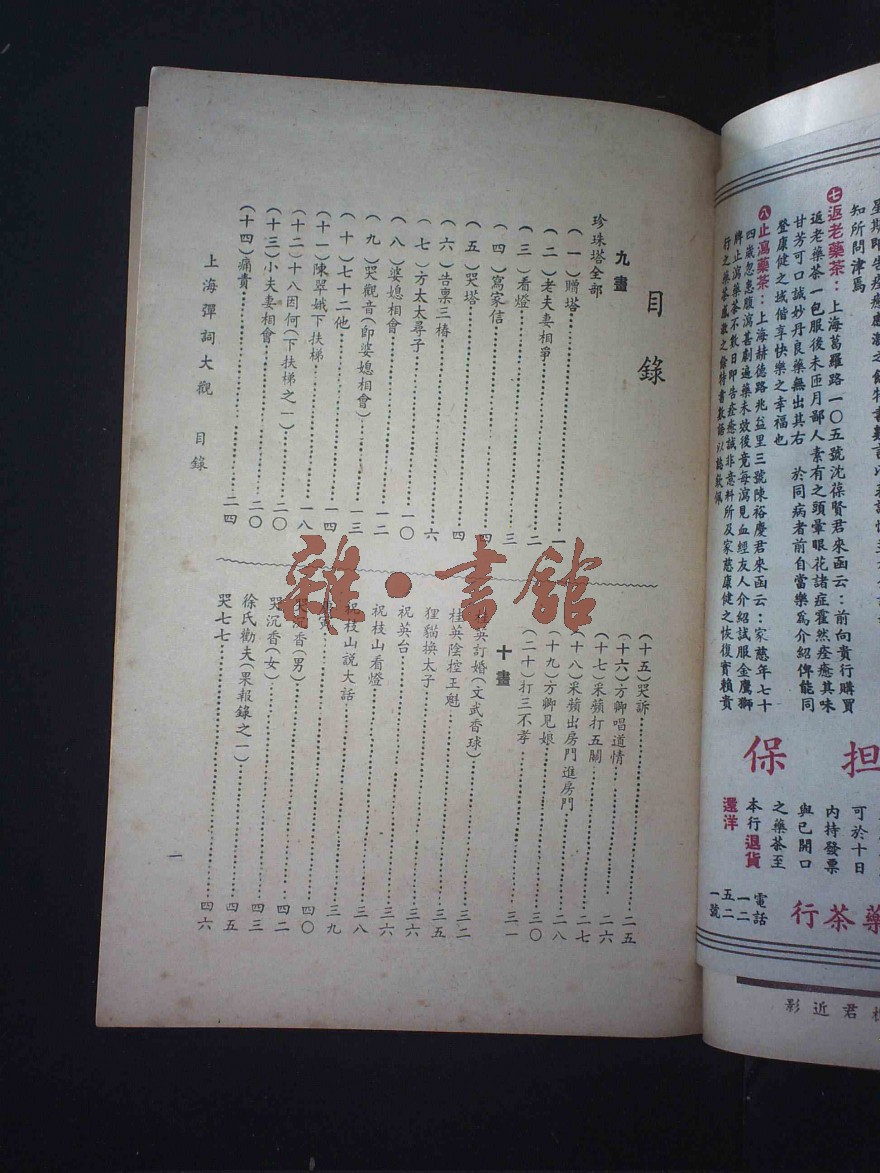 七返老藥茶：上海葛羅路一〇五號沈葆賢君來函云：前向貴行購買
返老藥茶一包服後未匝月鄙人素有之頭暈眼花諸症霍然痊癒其味
甘芳可口誠妙丹良藥無出其右　於同病者前自當樂爲介紹俾能同
登康健之域偕享快樂之幸福也
八止瀉藥茶：上海赫德路兆益里三號陳裕慶君來函云：家慈年七十
四歲忽患腹瀉甚劇遍藥未效後竟每瀉見血經友人介紹試服金鷹獅
牌止瀉藥茶不數日即告痊癒誠非意料所及家慈康健之恢復實賴貴
行之藥茶感激之餘特書數語以誌欽佩
担保
可於十日
內持發票
與已開口
之藥茶至
本行退貨
還洋
藥茶行
電話
一二
五二
一號
君近影
目錄
九畫
珍珠塔全部
(一)贈塔……一
(二)老夫妻相爭……二
(三)看燈……三
(四)寫家信……四
(五)哭塔……四
(六)告稟三樁……六
(七)方太太尋子……一〇
(八)婆媳相會……一二
(九)哭觀音(即婆媳相會)……一三
(十)七十二他……一四
(十一)陳翠娥下扶梯……一八
(十二)十八因何(下扶梯之一)……二〇
(十三)小夫妻相會……二〇
(十四)痛責……二四
(十五)哭訴……二五
(十六)方卿唱道情……二六
(十七)采蘋打五關……二七
(十八)采蘋出房門進房門……二八
(十九)方卿見娘……三〇
(二十)打三不孝……三一
十畫
桂英訂婚(文武香球)……三二
桂英陰控王魁……三五
狸貓換太子……三六
祝英台……三六
祝枝山看燈……三八
祝枝山說大話……三九
……四〇
哭沉香(男)……四二
哭沉香(女)……四三
徐氏勸夫(果報錄之一)……四五
哭七七……四六
上海彈詞大觀　目錄
一
雜·書館